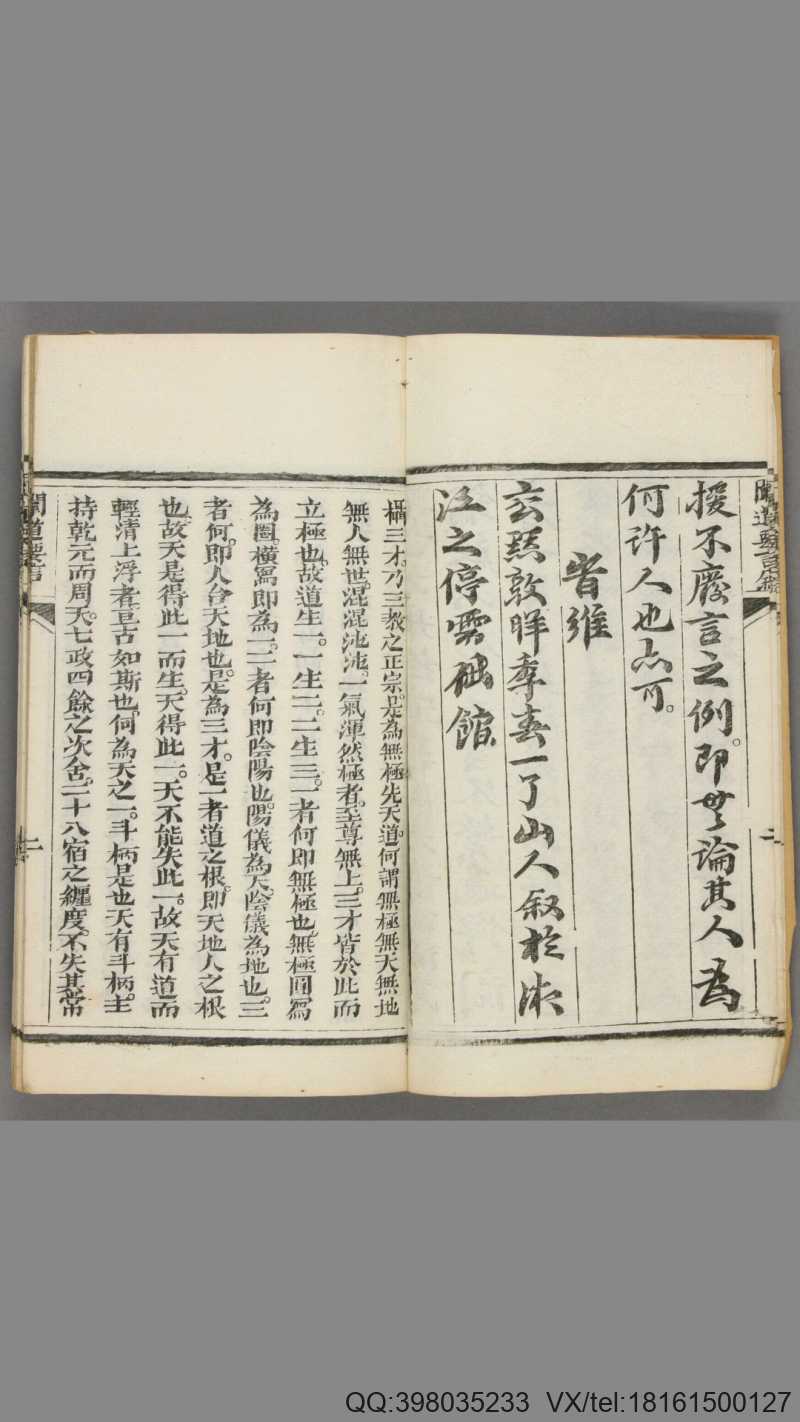 援不廢言之例。即無論其人為
何許人也亦可。
昔維
玄黓敦牂季春一了山人叙於淞
江之停雲
館
二
攝三才。乃三教之正宗。是為無極先天道。何謂無極無天無地
無人無世。混混沌沌。一氣渾然極者。至尊無上。三才皆於此而
立極也。故道生一。一生二。二生三。一者何即無極也。無極圓寫
為圈。橫寫即為一。二者何即陰陽也。陽儀為天。陰儀為地也。三
者何。即人合天地也。是為三才。是一者道之根。即天地人之根
也。故天是得此一而生。天得此一。天不能失此一。故天有道而
輕清上浮者。亘古如斯也。何為天之一。斗柄是也。天有斗柄。主
持乾元而周天。七政四餘之次舍。二十八宿之纏度。不失其常
聞道要言
二
QQ:398035233 VX/tel:18161500127